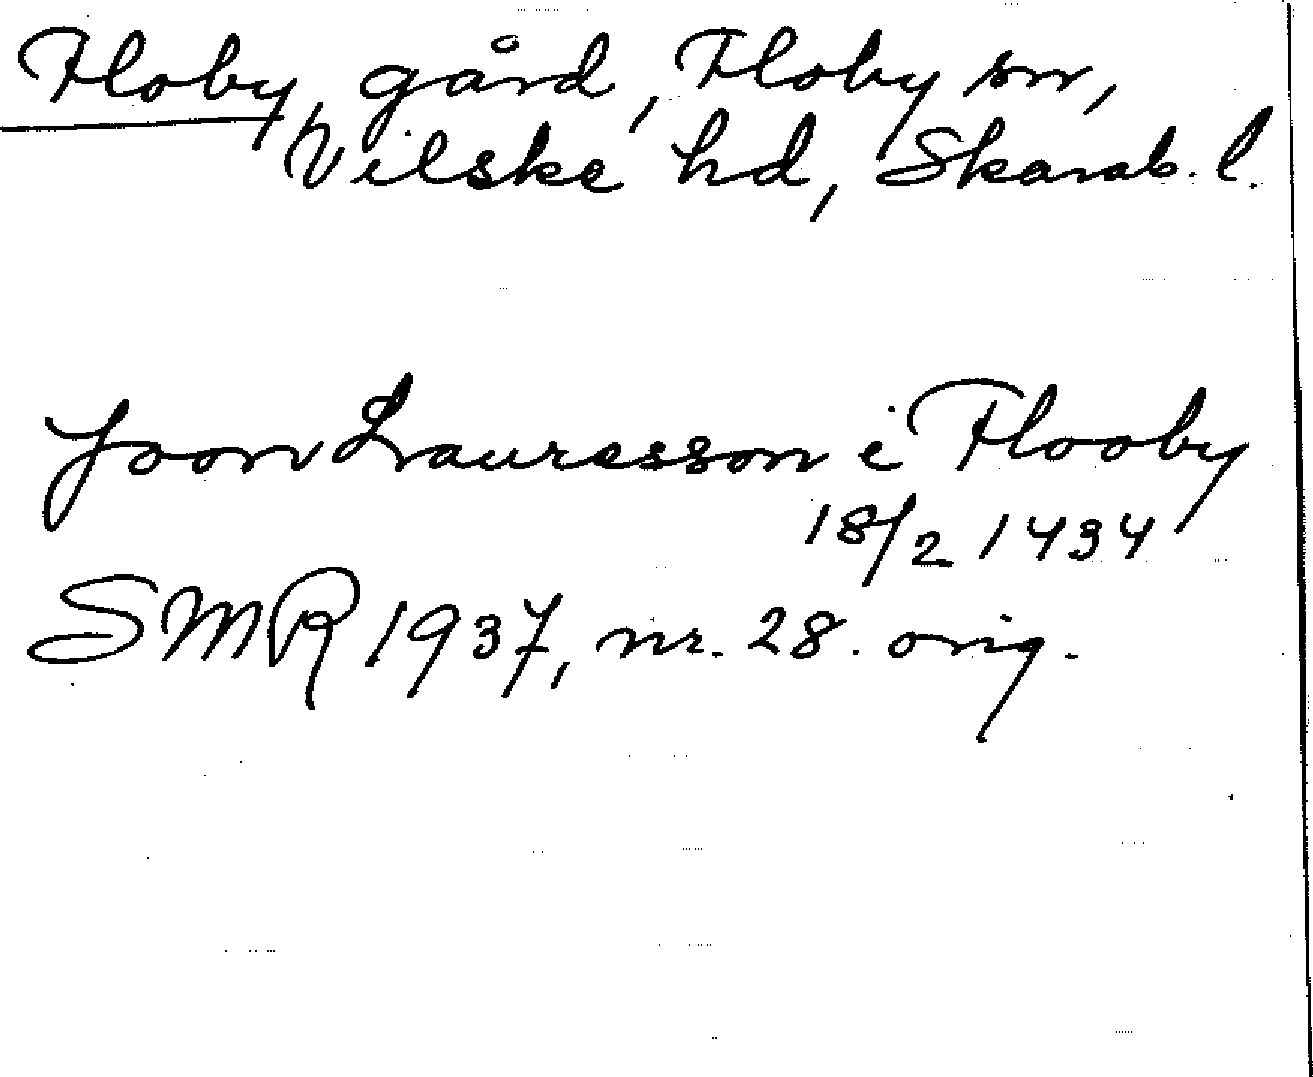 Floby, gård, Floby sn,
Vilske hd, Skarab. l.
Joon Lauresson i Flooby
18/2 1434
SMR 1937, nr. 28. orig.